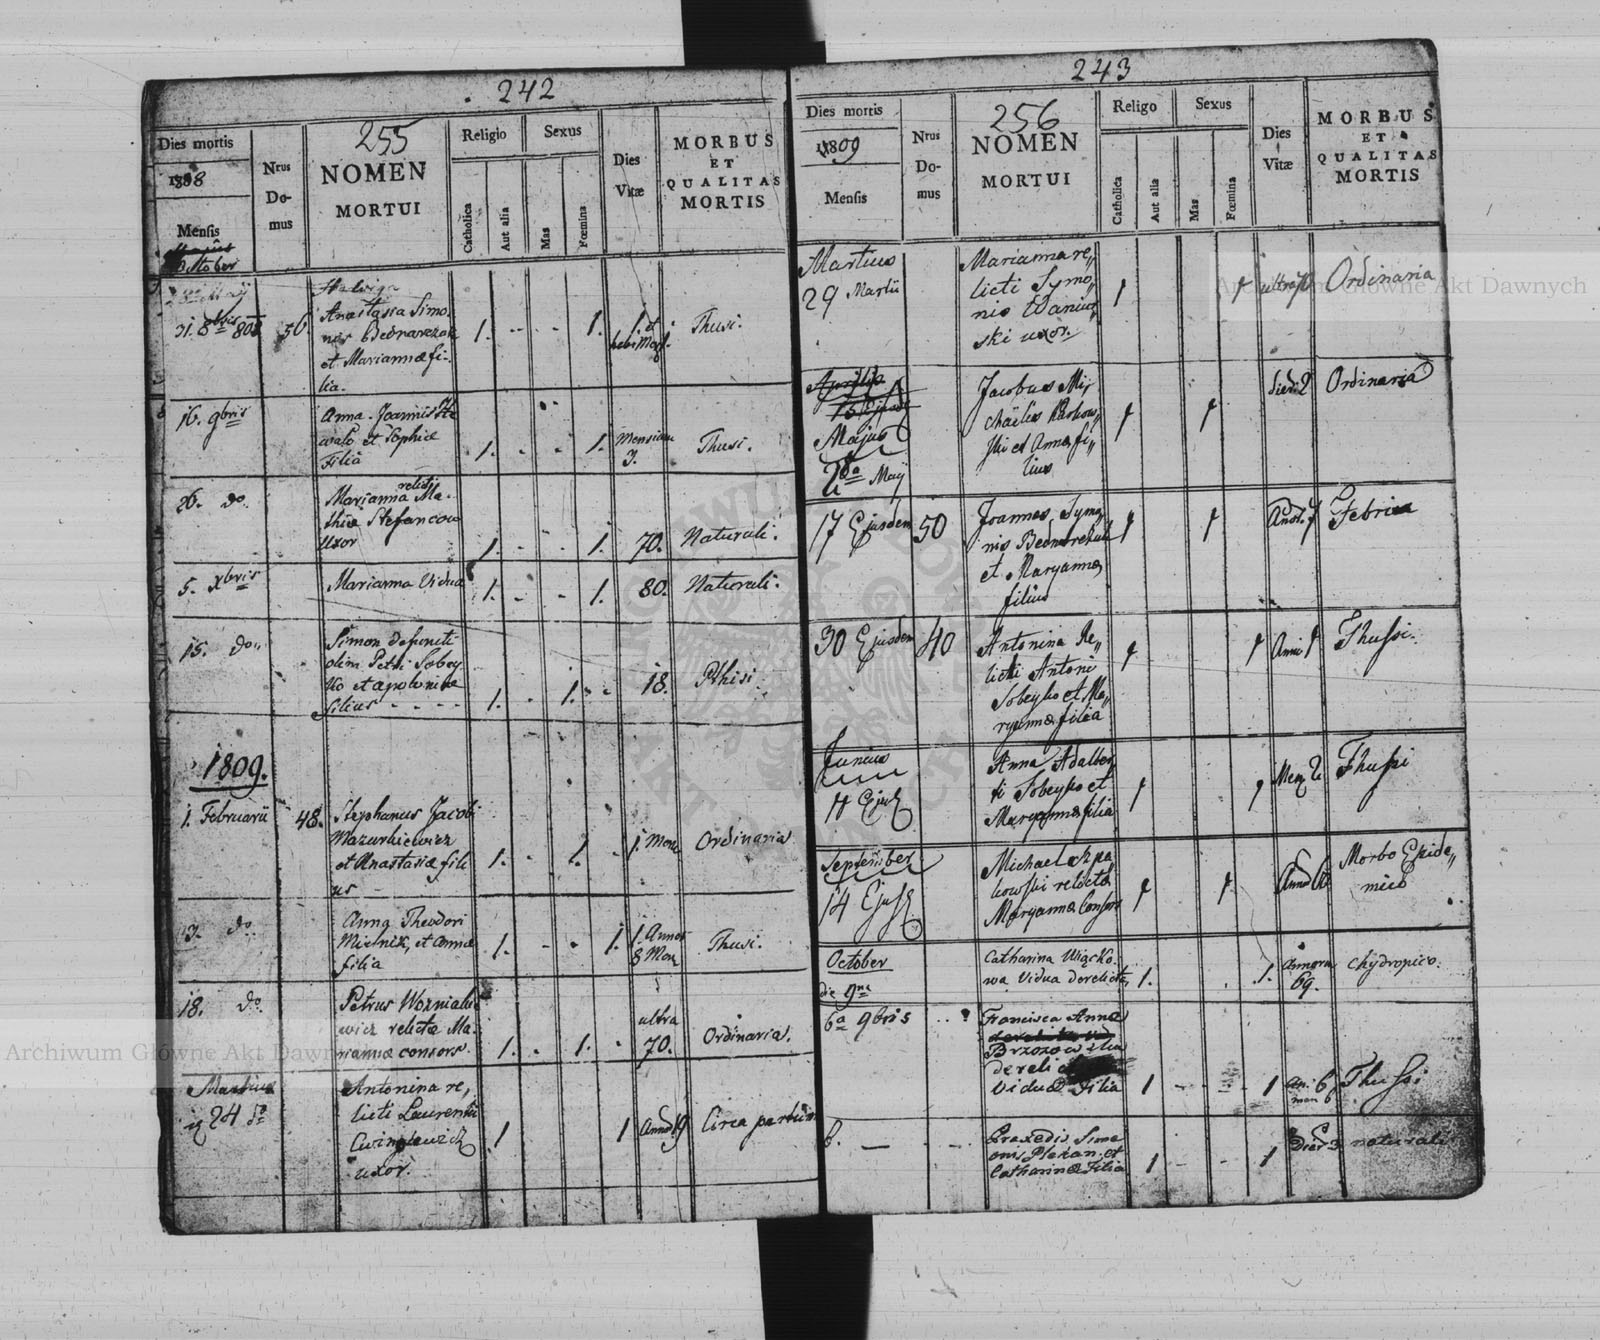 242
Dies mortis
1808
Mensis
Nrus
Do-
mus
255
NOMEN
MORTUI
Religio
Catholica
Aut alia
Sexus
Mas
Fœmina
Dies
Vitæ
MORBUS
ET
QUALITAS
MORTIS
October
31. 8bris 808
56.
Anastasia Simo
nis Bednarczak
et Mariannæ fi-
lia.
1. - - 1.
1. et
Thusi.
16. 9bris
Anna Joannis
et Sophiæ
Filia
1. - - 1.
Mensium
3.
Thusi.
26. do
Marianna relicti Ma-
thiæ Stefancow
Uxor
1. - - 1.
70.
Naturali.
5. Xbris
Marianna Vidua
1. - - 1.
80.
Naturali.
15. do
Simon defuncti
olim Petri Sobey
ko et Apoloniæ
filius - - - -
1. - 1. -
18.
Pthisi
1809.
1. Februarii
48.
Stephanus Jacobi
Mazurkiewicz
et Anastasiæ fili
us
1. - 1. -
1. Mens
Ordinaria
3. do
Anna Theodori
Mielnik, et Annæ
filia
1. - - 1.
1. Annor
8 Mens
Thusi.
18. do
Petrus Wozniak
wicz relictæ Ma-
riannæ consors.
1. - 1. -
ultra
70.
Ordinaria.
Martius
24
Antonina re,,
licti Laurentii
uxor.
1
1
Annor 19
Circa partum
243
Dies mortis
1809
Mensis
Nrus
Do-
mus
256
NOMEN
MORTUI
Religo
Catholica
Aut alia
Sexus
Mas
Fœmina
Dies
Vitæ
MORBUS
ET
QUALITAS
MORTIS
Martius
29 Martii
Marianna re,,
licti Symo,,
nis
ski uxor.
1
1
Ordinaria
Aprilis
Majus
2da Maij
Jacobus Mi,,
chaelis
ski et Annæ fi,,
lius
1
1
dieru 2
Ordinaria
17 Ejusdem
50
Joannes Symo,,
nis Bednarchak
et Maryannæ
filius
1
1
Febrica
30 Ejusdem
40
Antonina Re,,
licti Antoni
Sobeyko et Ma,,
ryannæ filia
1
1
Anni 1
Thussi.
Junius
Anna Adalber
ti Sobeyko et
Maryannæ filia
1
1
Thussi
September
14
Michael
kowski relictæ
Maryannæ Consors
1
1
Morbo Epide,,
mico
October
die 9na
Catharina Wiącko
wa Vidua derelicta
1.
1.
Annorum
69.
chydropico.
6a 9bris
Francisca Annæ
Brzozowska
Viduæ Filia
1 - - 1
an: 6
men 6
Thussi
6. —
Praxedis Sime
onis et
Catharinæ Filia
1 - - 1
Dier 3
naturali
Archiwum Główne Akt Dawnych
Archiwum Główne Akt Dawnych